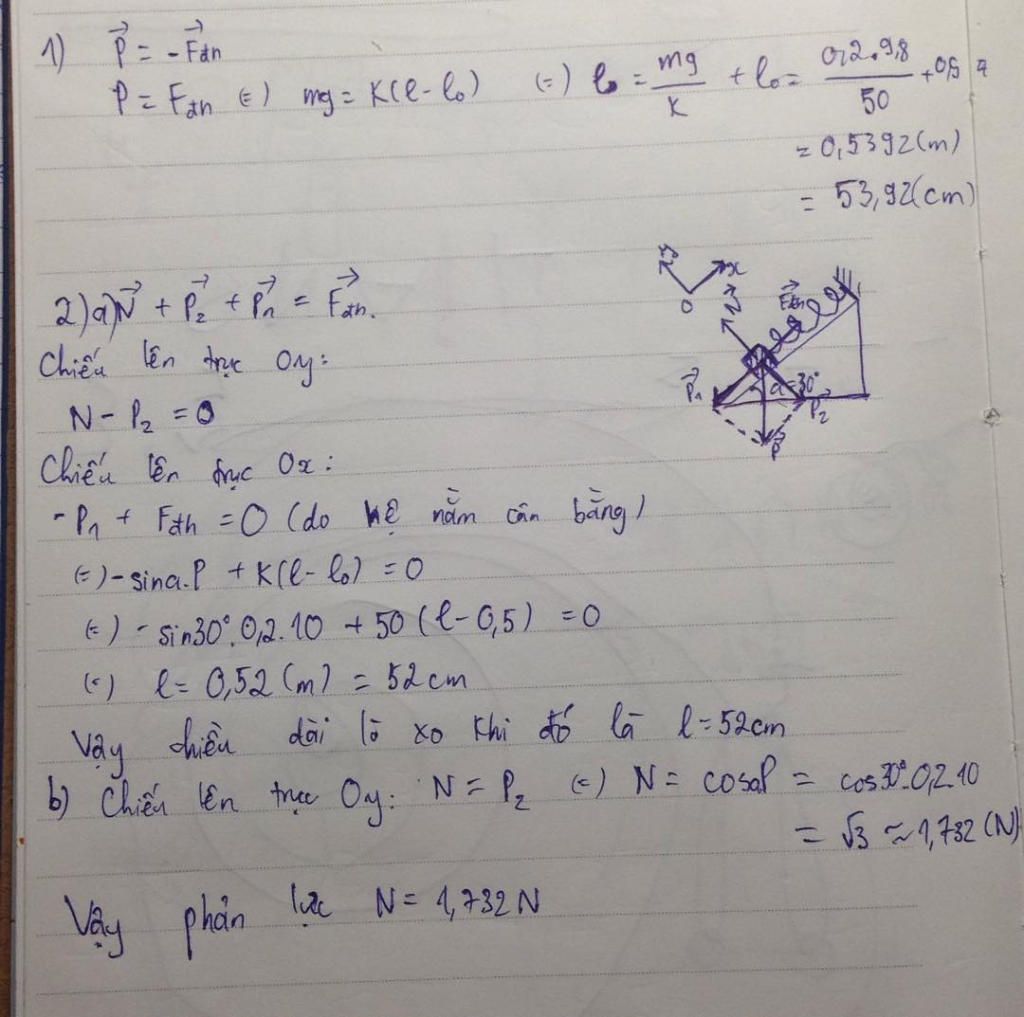 1) P⃗ = -F⃗đh
P = Fđh (=) mg = K(l - l₀) (=) l₀ = mg/K + l₀ = 0,2.9,8/50 + 0,5
= 0,5392(m)
= 53,92(cm)
y x O N⃗ F⃗đh P⃗₁ a=30° P⃗₂ P⃗
2) a) N⃗ + P⃗₂ + P⃗₁ = F⃗đh.
Chiếu lên trục Oy:
N - P₂ = 0
Chiếu lên trục Ox:
-P₁ + Fđh = 0 (do hệ nằm cân bằng)
(=) -sina.P + K(l - l₀) = 0
(=) - sin30°.0,2.10 + 50(l - 0,5) = 0
(=) l = 0,52 (m) = 52 cm
Vậy chiều dài lò xo khi đó là l = 52cm
b) Chiếu lên trục Oy: N = P₂ (=) N = cosaP = cos30°.0,2.10
= √3 ≈ 1,732 (N)
Vậy phản lực N = 1,732 N